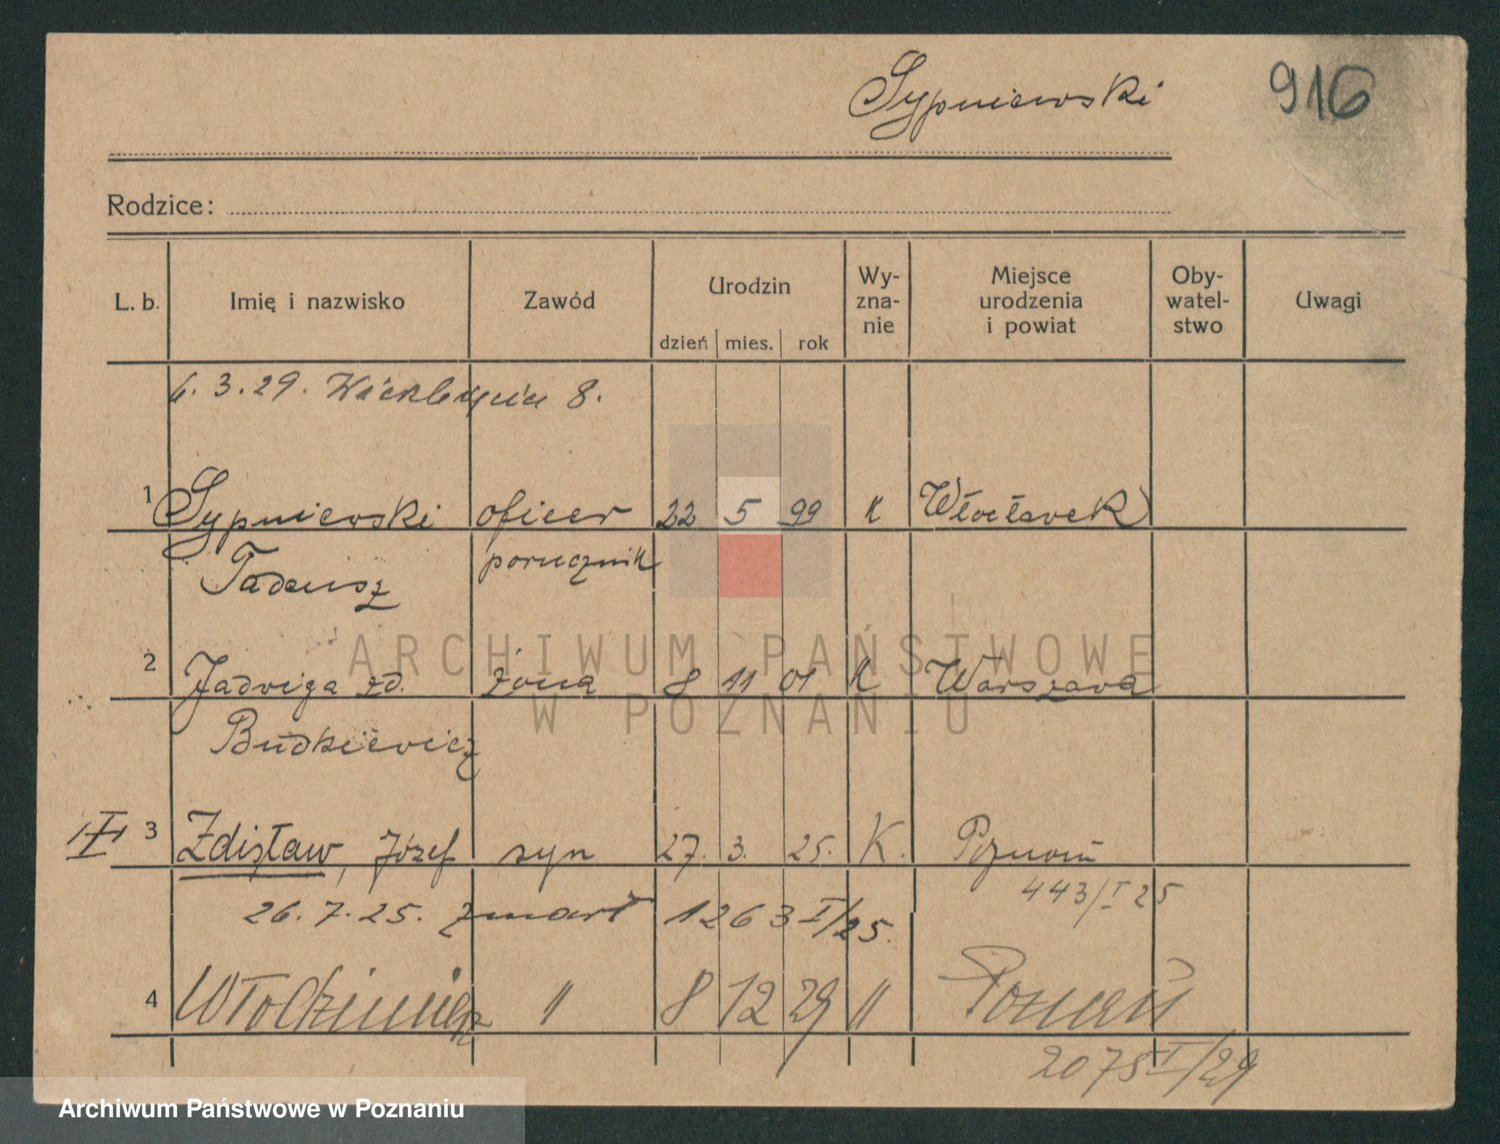 Sypniewski
916
Rodzice:
L. b. Imię i nazwisko Zawód Urodzin Wy- zna- nie Miejsce urodzenia i powiat Oby- watel- stwo Uwagi
dzień mies. rok
6. 3. 29. 8.
1 Sypniewski oficer 22 5 99 K Włocławek
Tadeusz porucznik
2 Jadwiga zd. żona 8 11 01 K Warszawa
Budkiewicz
3 Zdzisław, Józef syn 27. 3. 25. K. Poznań
443/I 25
26. 7. 25. zmarł 1263 I/25.
4 Włodzimierz " 8 12 29 " Poznań
2075 I/29
ARCHIWUM PAŃSTWOWE
W POZNANIU
Archiwum Państwowe w Poznaniu